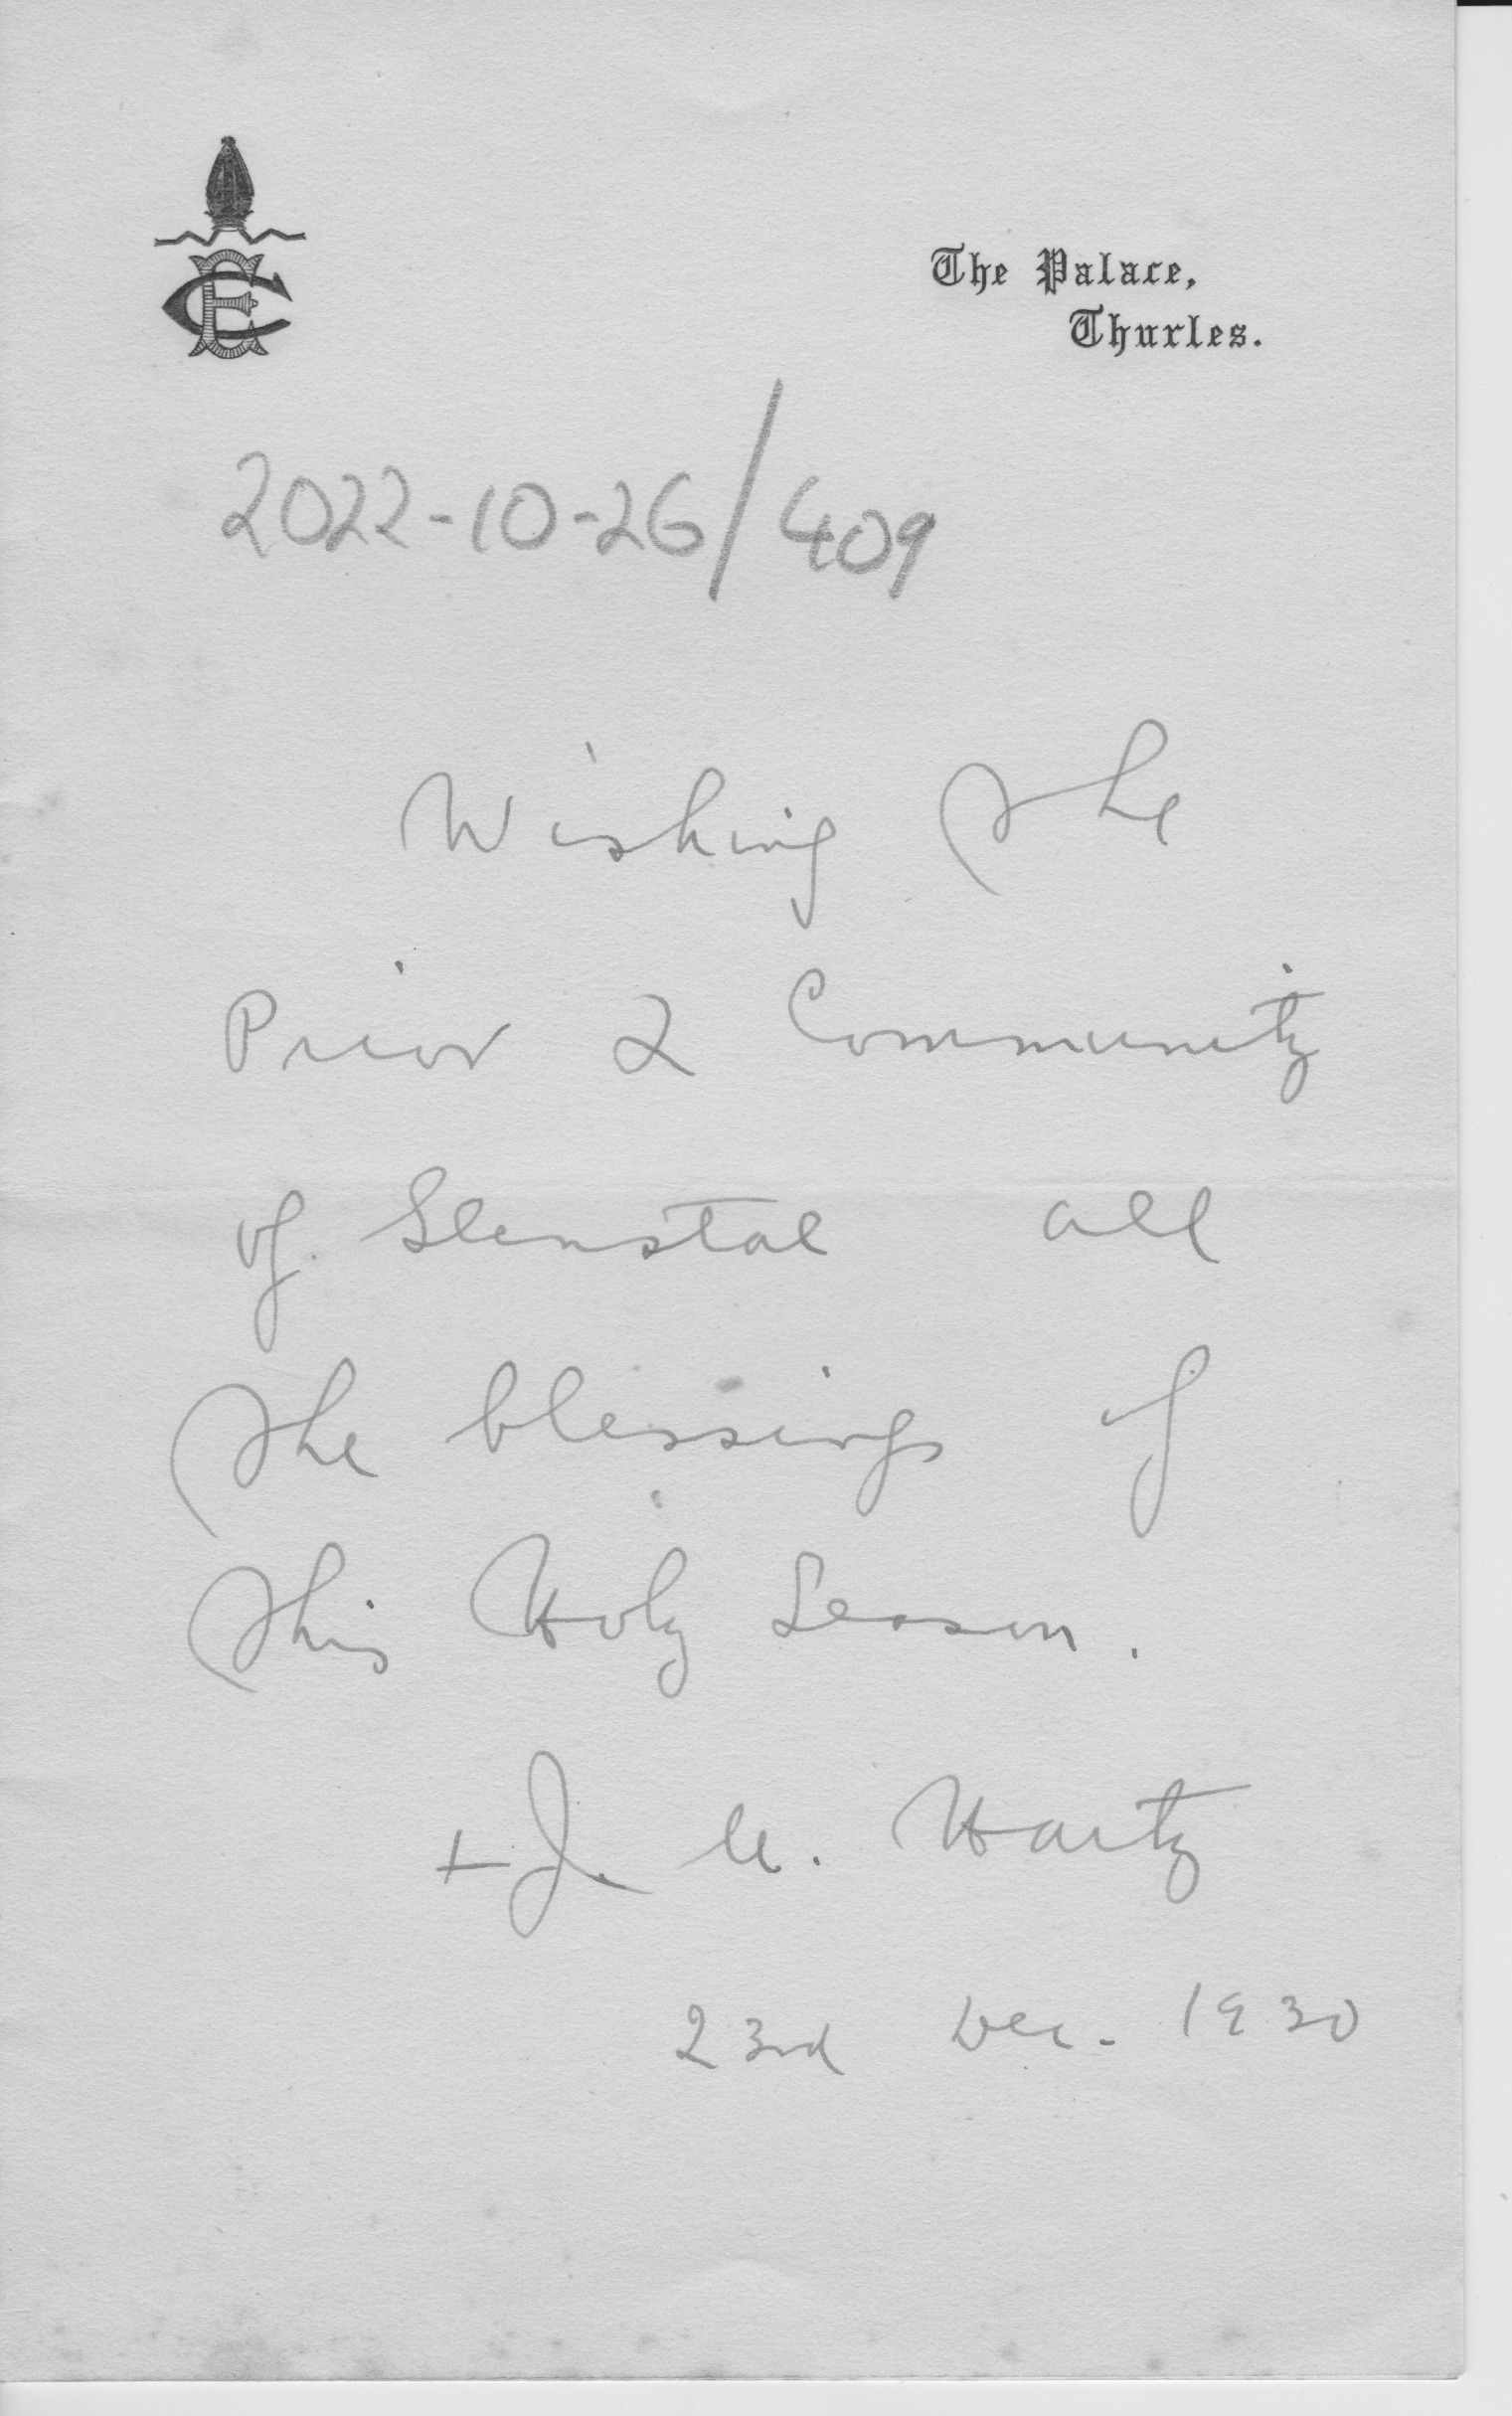 The Palace,
Thurles.
2022-10-26/409
Wishing the
Prior & Community
of Glenstal all
the blessings of
this Holy Season.
+ J. M. Harty
23rd Dec. 1930